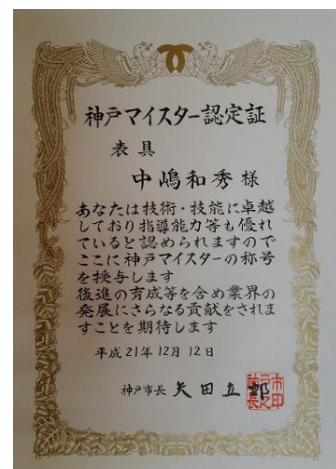 神戸マイスター認定証
表具
中嶋和秀様
あなたは技術・技能に卓越
しており指導能力等も優れ
ていると認められますので
ここに神戸マイスターの称号
を授与します
後進の育成等を含め業界の
発展にさらなる貢献をされま
すことを期待します
平成21年12月12日
神戸市長 矢田立郎